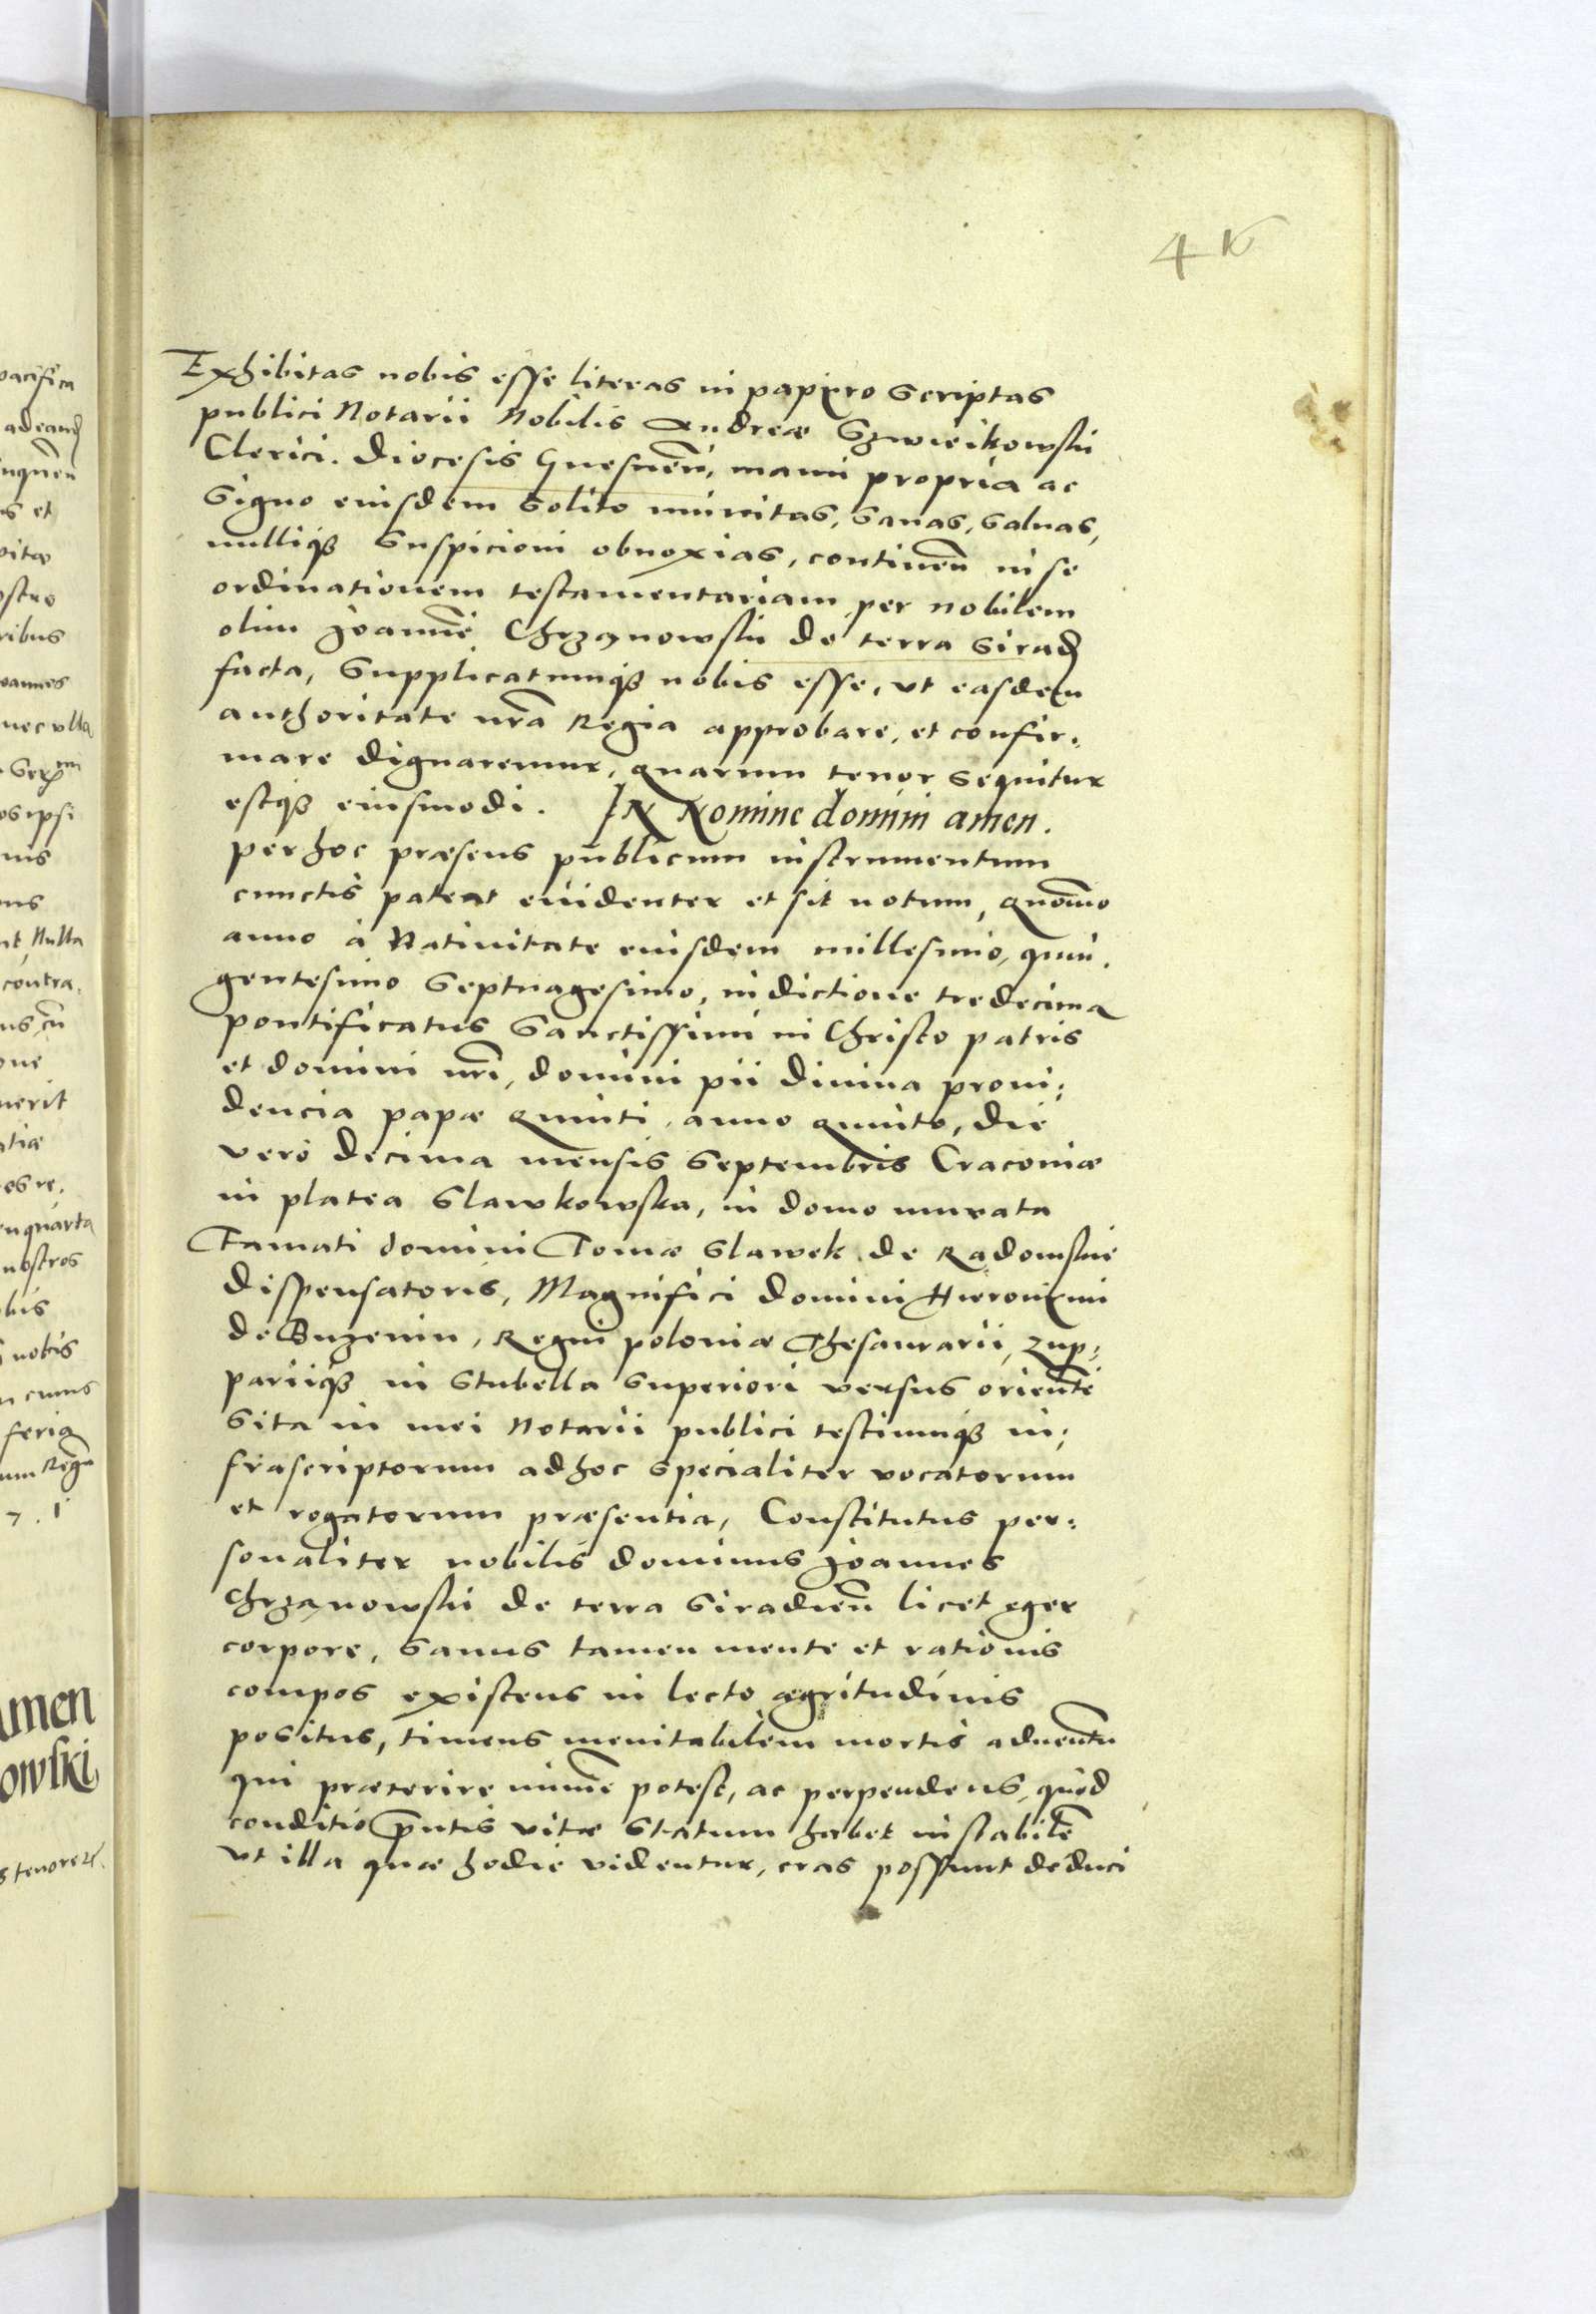 Exhibitas nobis esse literas in papiro scriptas
publici Notarii Nobilis Andreæ Szwieikowski
Clerici. Diocesis Gnesneñ, manu propria ac
signo eiusdem solito munitas, sanas, saluas,
nulliqȝ suspicioni obnoxias, contineñ in se
ordinationem testamentariam per nobilem
olim Joannē Chrzanowski de terra Sirad
facta, Supplicatumqȝ nobis esse, vt easdem
authoritate nr̃a Regia approbare, et confir:
mare dignaremur, quarum tenor sequitur
estqȝ eiusmodi. IN Nomine domini amen.
per hoc præsens publicum instrumentum
cunctis pateat euidenter et sit notum, quom̃o
anno à Natiuitate eiusdem millesimo, quin:
gentesimo Septuagesimo, indictione tredecima
pontificatus Sanctissimi in Christo patris
et domini nr̃i, domini pii diuina proui:
dencia papæ quinti, anno quinto, die
vero decima mensis Septembris Cracouiæ
in platea Slawkowska, in domo murata
Famati domini Tomæ Slawek de Radomskie
dispensatoris, Magnifici domini Hieronimi
de Buzenin, Regni poloniæ Thesaurarii, Zup:
pariiqȝ in stubella superiori versus orientē
sita in mei Notarii publici testiumqȝ in:
frascriptorum ad hoc specialiter vocatorum
et rogatorum præsentia, Constitutus per:
sonaliter nobilis dominus Joannes
Chrzanowski de terra Siradieñ licet eger
corpore, sanus tamen mente et rationis
compos existens in lecto ægritudinis
positus, timens ineuitabilem mortis aduentū
qui præterire nimē potest, ac perpendens, quod
conditio p̃ntis vitæ statum habet instabilē
vt illa quæ hodie videntur, cras possunt deduci